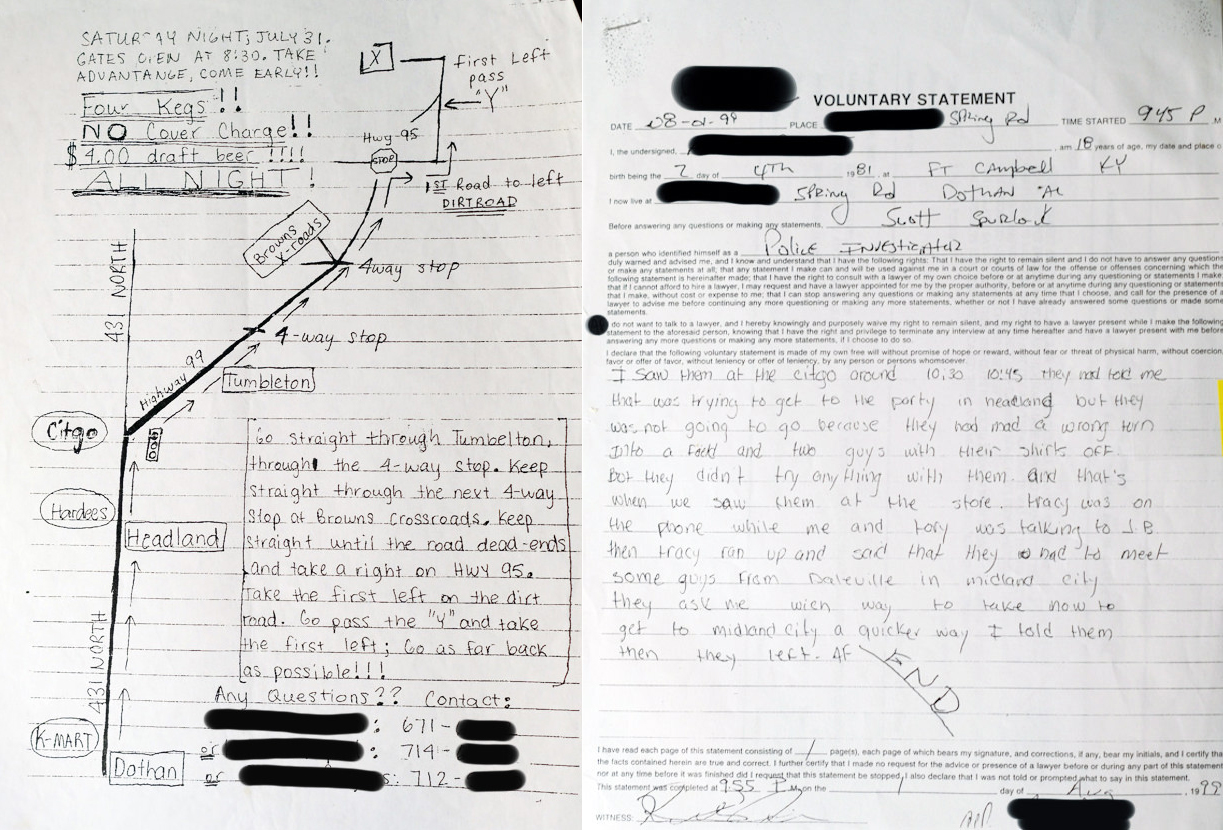 SATURDAY NIGHT, JULY 31.
GATES OPEN AT 8:30. TAKE
ADVANTANGE, COME EARLY!!
Four Kegs!!
NO Cover Charge!!
$4.00 draft beer !!!!
ALL NIGHT!
X
First Left
pass
"Y"
Hwy-95
STOP
1ST Road to left
DIRTROAD
Browns
X-roads
4way stop
431 NORTH
4-way stop
Highway 99
Tumbleton
Citgo
Go straight through Tumbelton,
through the 4-way stop. Keep
straight through the next 4-way
stop at Browns crossroads. Keep
straight until the road dead-ends
and take a right on HWY 95.
Take the first left on the dirt
road. Go pass the "Y" and take
the first left; Go as far back
as possible!!!
Hardees
Headland
431 NORTH
K-MART
Dothan
Any Questions?? Contact:
: 671-
or : 714-
or s: 712-
VOLUNTARY STATEMENT
DATE 08-01-99 PLACE Spring Rd TIME STARTED 945 P .M
I, the undersigned, , am 18 years of age, my date and place o
birth being the 2 day of 4TH 1981, at FT CAmpbell KY
I now live at SPRING Rd DOTHAN AL
Before answering any questions or making any statements, Scott Spurlock
a person who identified himself as a Police Investigator
duly warned and advised me, and I know and understand that I have the following rights: That I have the right to remain silent and I do not have to answer any questions
or make any statements at all; that any statement I make can and will be used against me in a court or courts of law for the offense or offenses concerning which the
following statement is hereinafter made; that I have the right to consult with a lawyer of my own choice before or at anytime during any questioning or statements I make
that if I cannot afford to hire a lawyer, I may request and have a lawyer appointed for me by the proper authority, before or at anytime during any questioning or statements
that I make, without cost or expense to me; that I can stop answering any questions or making any statements at any time that I choose, and call for the presence of a
lawyer to advise me before continuing any more questioning or making any more statements, whether or not I have already answered some questions or made some
statements.
do not want to talk to a lawyer, and I hereby knowingly and purposely waive my right to remain silent, and my right to have a lawyer present while I make the following
statement to the aforesaid person, knowing that I have the right and privilege to terminate any interview at any time hereafter and have a lawyer present with me before
answering any more questions or making any more statements, if I choose to do so.
I declare that the following voluntary statement is made of my own free will without promise of hope or reward, without fear or threat of physical harm, without coercion
favor or offer of favor, without leniency or offer of leniency, by any person or persons whomsoever.
I saw them at the citgo around 10,30 10:45 they had told me
that was trying to get to the party in headland but they
was not going to go because they had mad a wrong turn
Into a and two guys with their shirts off.
But they didn't try anything with them. and that's
when we saw them at the store. tracy was on
the phone while me and tory was talking to J.B.
then tracy ran up and said that they had to meet
some guys from Daleville in midland city
they ask me wich way to take how to
get to midland city a quicker way I told them
then they left. AF
END
I have read each page of this statement consisting of 1 page(s), each page of which bears my signature, and corrections, if any, bear my initials, and I certify tha
the facts contained herein are true and correct. I further certify that I made no request for the advice or presence of a lawyer before or during any part of this statement
nor at any time before it was finished did I request that this statement be stopped. I also declare that I was not told or prompted what to say in this statement.
This statement was completed at 9:55 P M. on the 1 day of Aug , 1999
WITNESS: